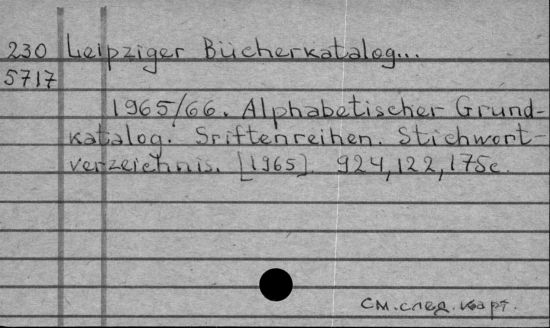 230 Leipziger Bücherkatalog...
5717
1965/66. Alphabetischer Grund-
katalog. Sriftenreihen. Stichwort-
verzeichnis. [1965]. 924,122,175c.
см.след.карт.